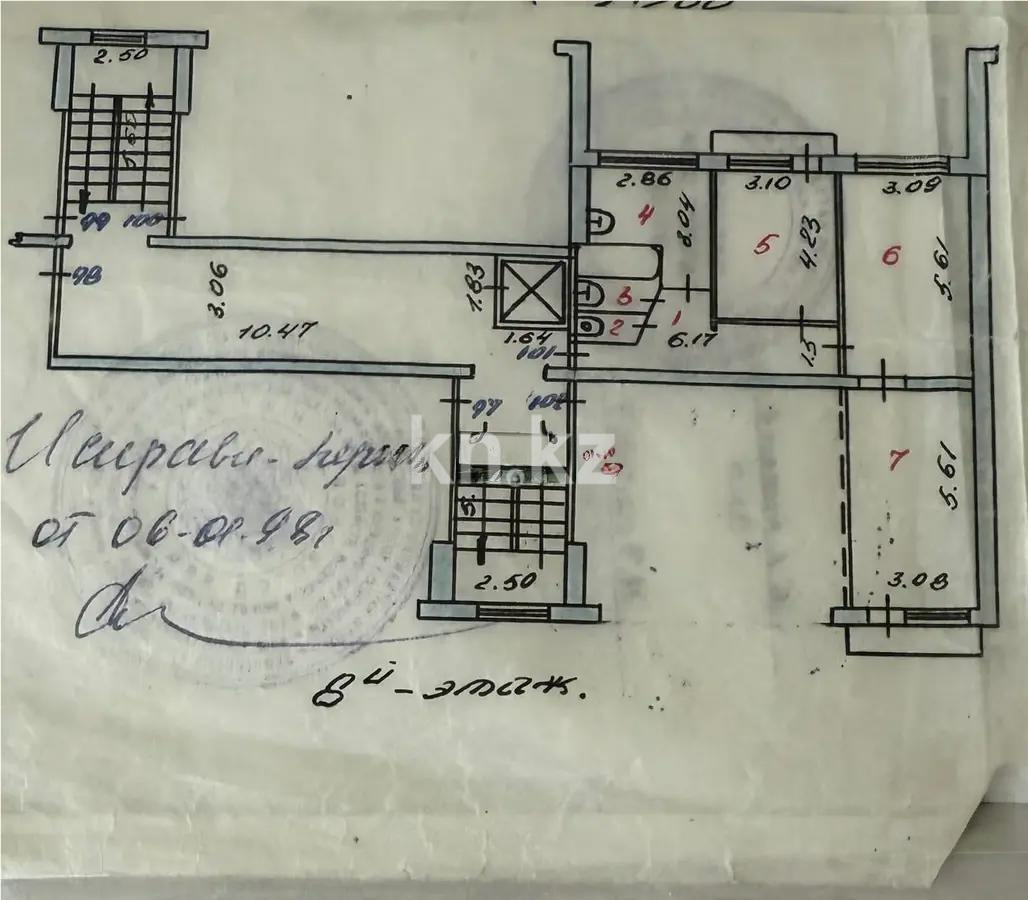 2.50
5.60
99 100
98
3.06
10.47
1.83
1.64
101
2.86
3.04
4
3.10
4.23
5
3.09
5.61
6
3
2
1
6.17
1.5
97 102
5.61
7
3.08
2.50
kn.kz
от 06-01.98г
8й-этаж.